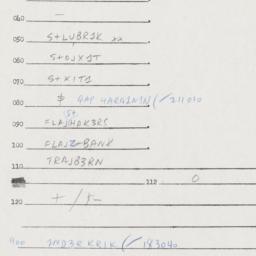 040. —
050 S+LUBR1K xx
060 S+OJX1T
070 S+XIT1
080 $ GAP HARA1N1N(/211010
090 FLAJHDK3RS
100 FLAJZ-BANK
110 TRAJB3RN
112 0
120 +/5-
900 2ND3RKRIK(/183040